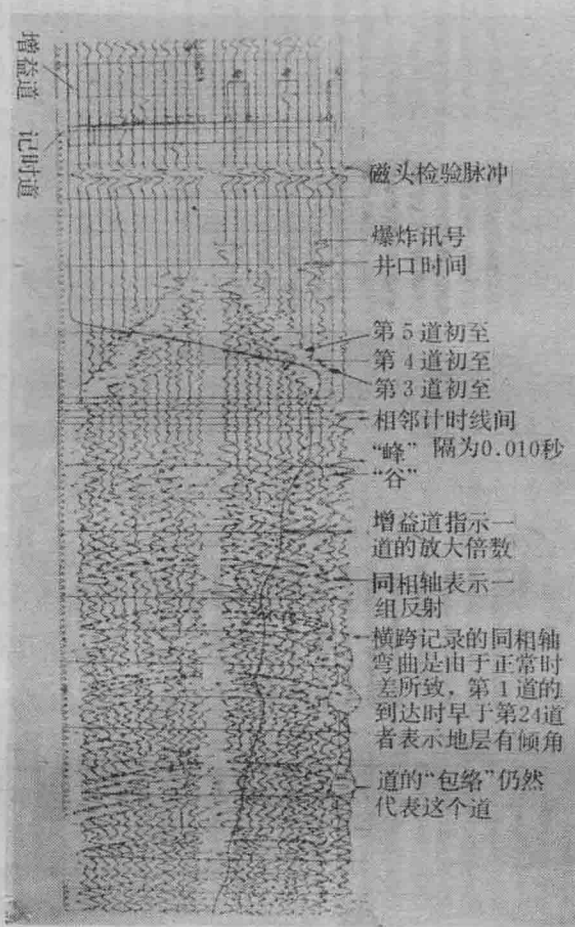 增益道
记时道
磁头检验脉冲
爆炸讯号
井口时间
第5道初至
第4道初至
第3道初至
相邻计时线间
“峰” 隔为0.010秒
“谷”
增益道指示一
道的放大倍数
同相轴表示一
组反射
横跨记录的同相轴
弯曲是由于正常时
差所致，第1道的
到达时早于第24道
者表示地层有倾角
道的“包络”仍然
代表这个道